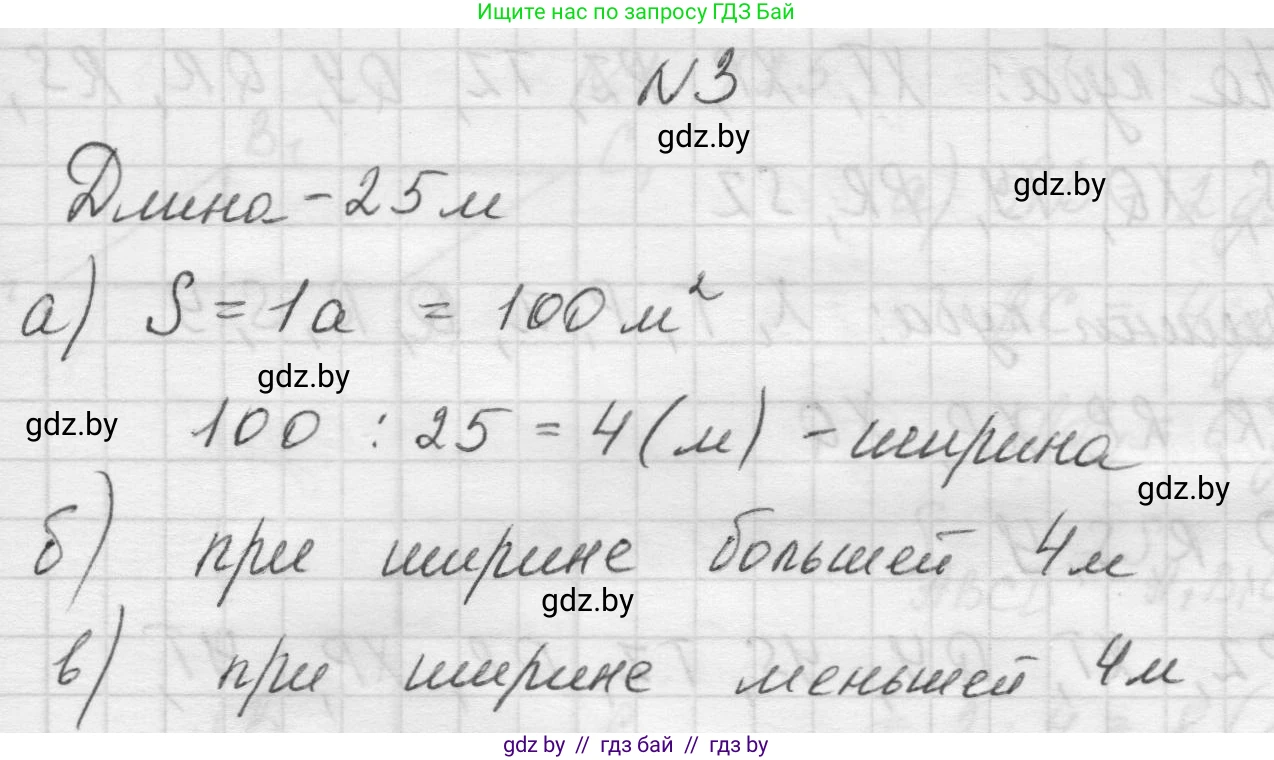 Ищите нас по запросу ГДЗ Бай
N3
gdz.by
Длина - 25 м
gdz.by
а) S = 1а = 100 м²
gdz.by
gdz.by
100 : 25 = 4 (м) - ширина
gdz.by
б) при ширине большей 4 м
gdz.by
в) при ширине меньшей 4 м
gdz by // гдз бай // гдз by